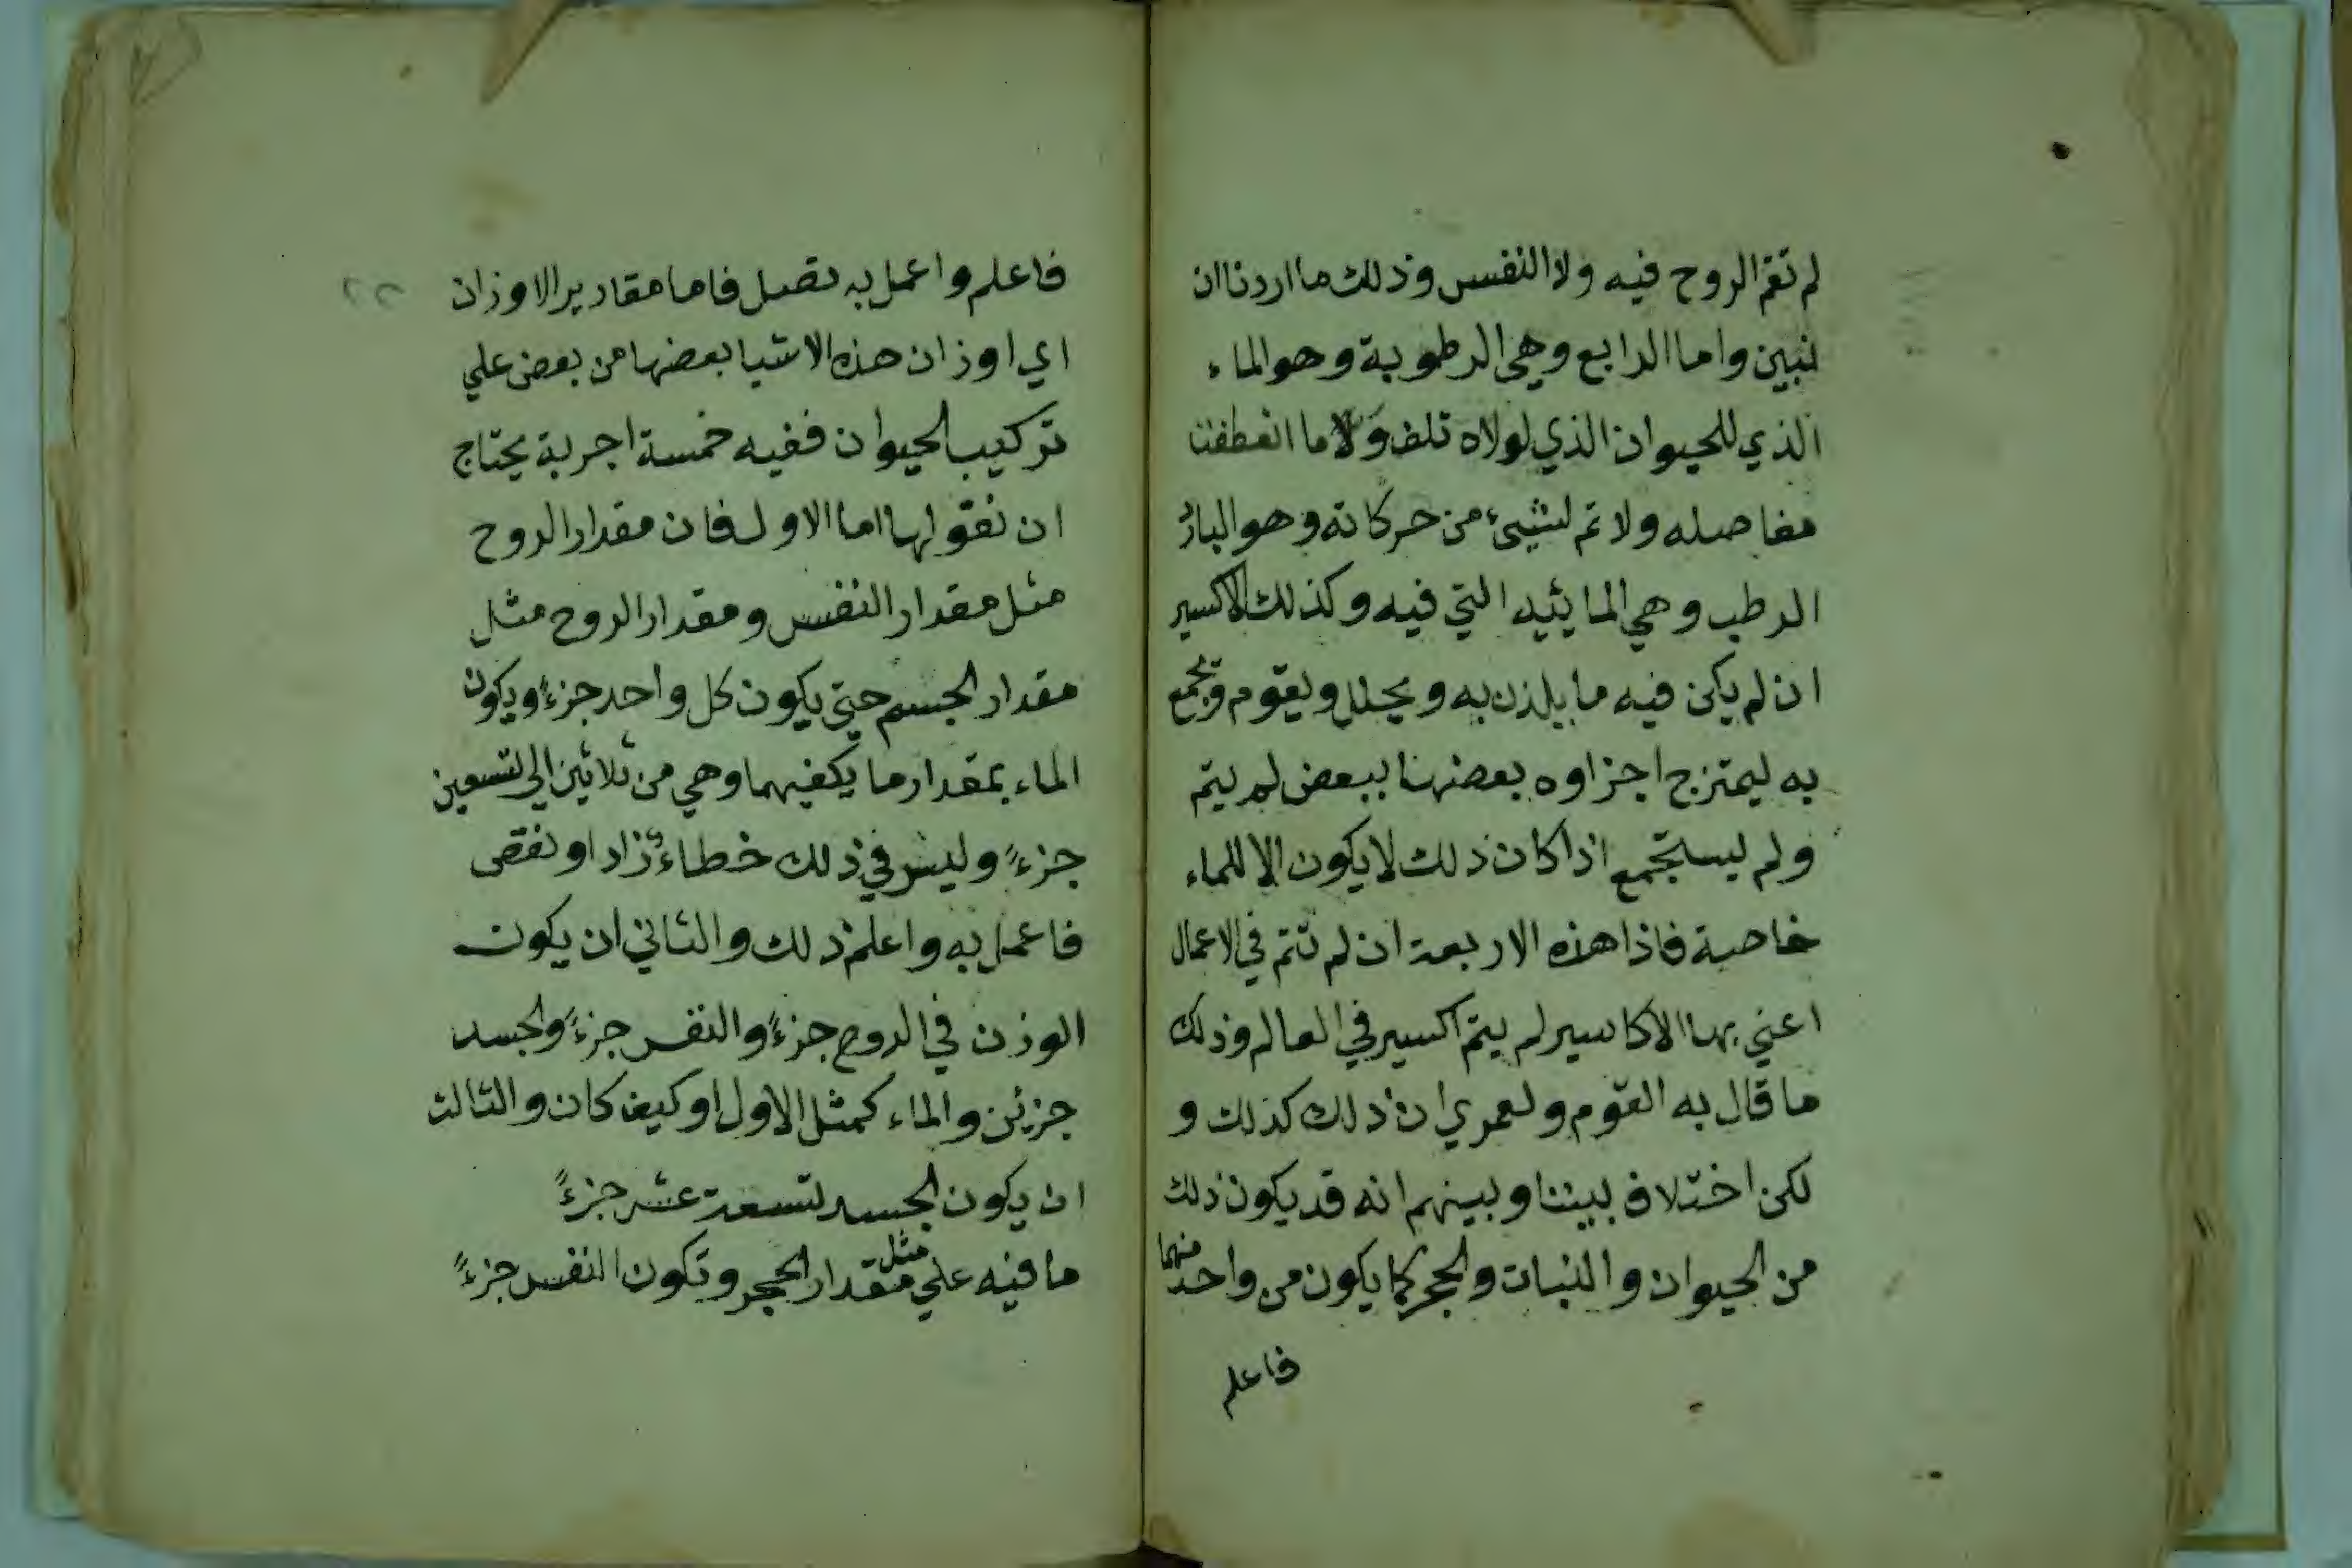 لم تقم الروح فيه ولا النفس وذلك ما اردنا ان
نبين واما الرابع وهي الرطوبة وهو الماء
الذي للحيوان الذي لولاه تلف ولا ما انعطفت
مفاصله ولا تم لشيئ من حركاته وهو البارد
الرطب وهي المائيه التي فيه وكذلك الاكسير
ان لم يكن فيه ما يلذن به ويحلل ويقوم وتجمع
به ليمتزج اجزاوه بعضها ببعض لم يتم
ولم يستجمع اذا كان ذلك لا يكون الا للماء
خاصة فاذا هذه الاربعة ان لم تتم في الاعمال
اعني بها الاكاسير لم يتم اكسير في العالم وذلك
ما قال به القوم ولعمري ان ذلك كذلك و
لكن اختلاف بيننا وبينهم انه قد يكون ذلك
من الحيوان والنبات والحجر كما يكون من واحد منهما
فاعلم
فاعلم واعمل به تصل فاما مقادير الاوزان
٢٢
اي اوزان هذه الاشيا بعضها من بعض علي
تركيب الحيوان ففيه خمسة اجربة يحتاج
ان نقولها اما الاول فان مقدار الروح
مثل مقدار النفس ومقدار الروح مثل
مقدار الجسم حتي يكون كل واحد جزءً ويكون
الماء بمقدار ما يكفيهما وهي من ثلاثين الي تسعين
جزءً وليس في ذلك خطاء زاد او نقص
فاعمل به واعلم ذلك والثاني ان يكون
الوزن في الروح جزءً والنفس جزءً والجسد
جزئين والماء كمثل الاول او كيف كان والثالث
ان يكون الجسد تسعة عشر جزءً
ما فيه علي مثل مقدار الحجر وتكون النفس جزءً